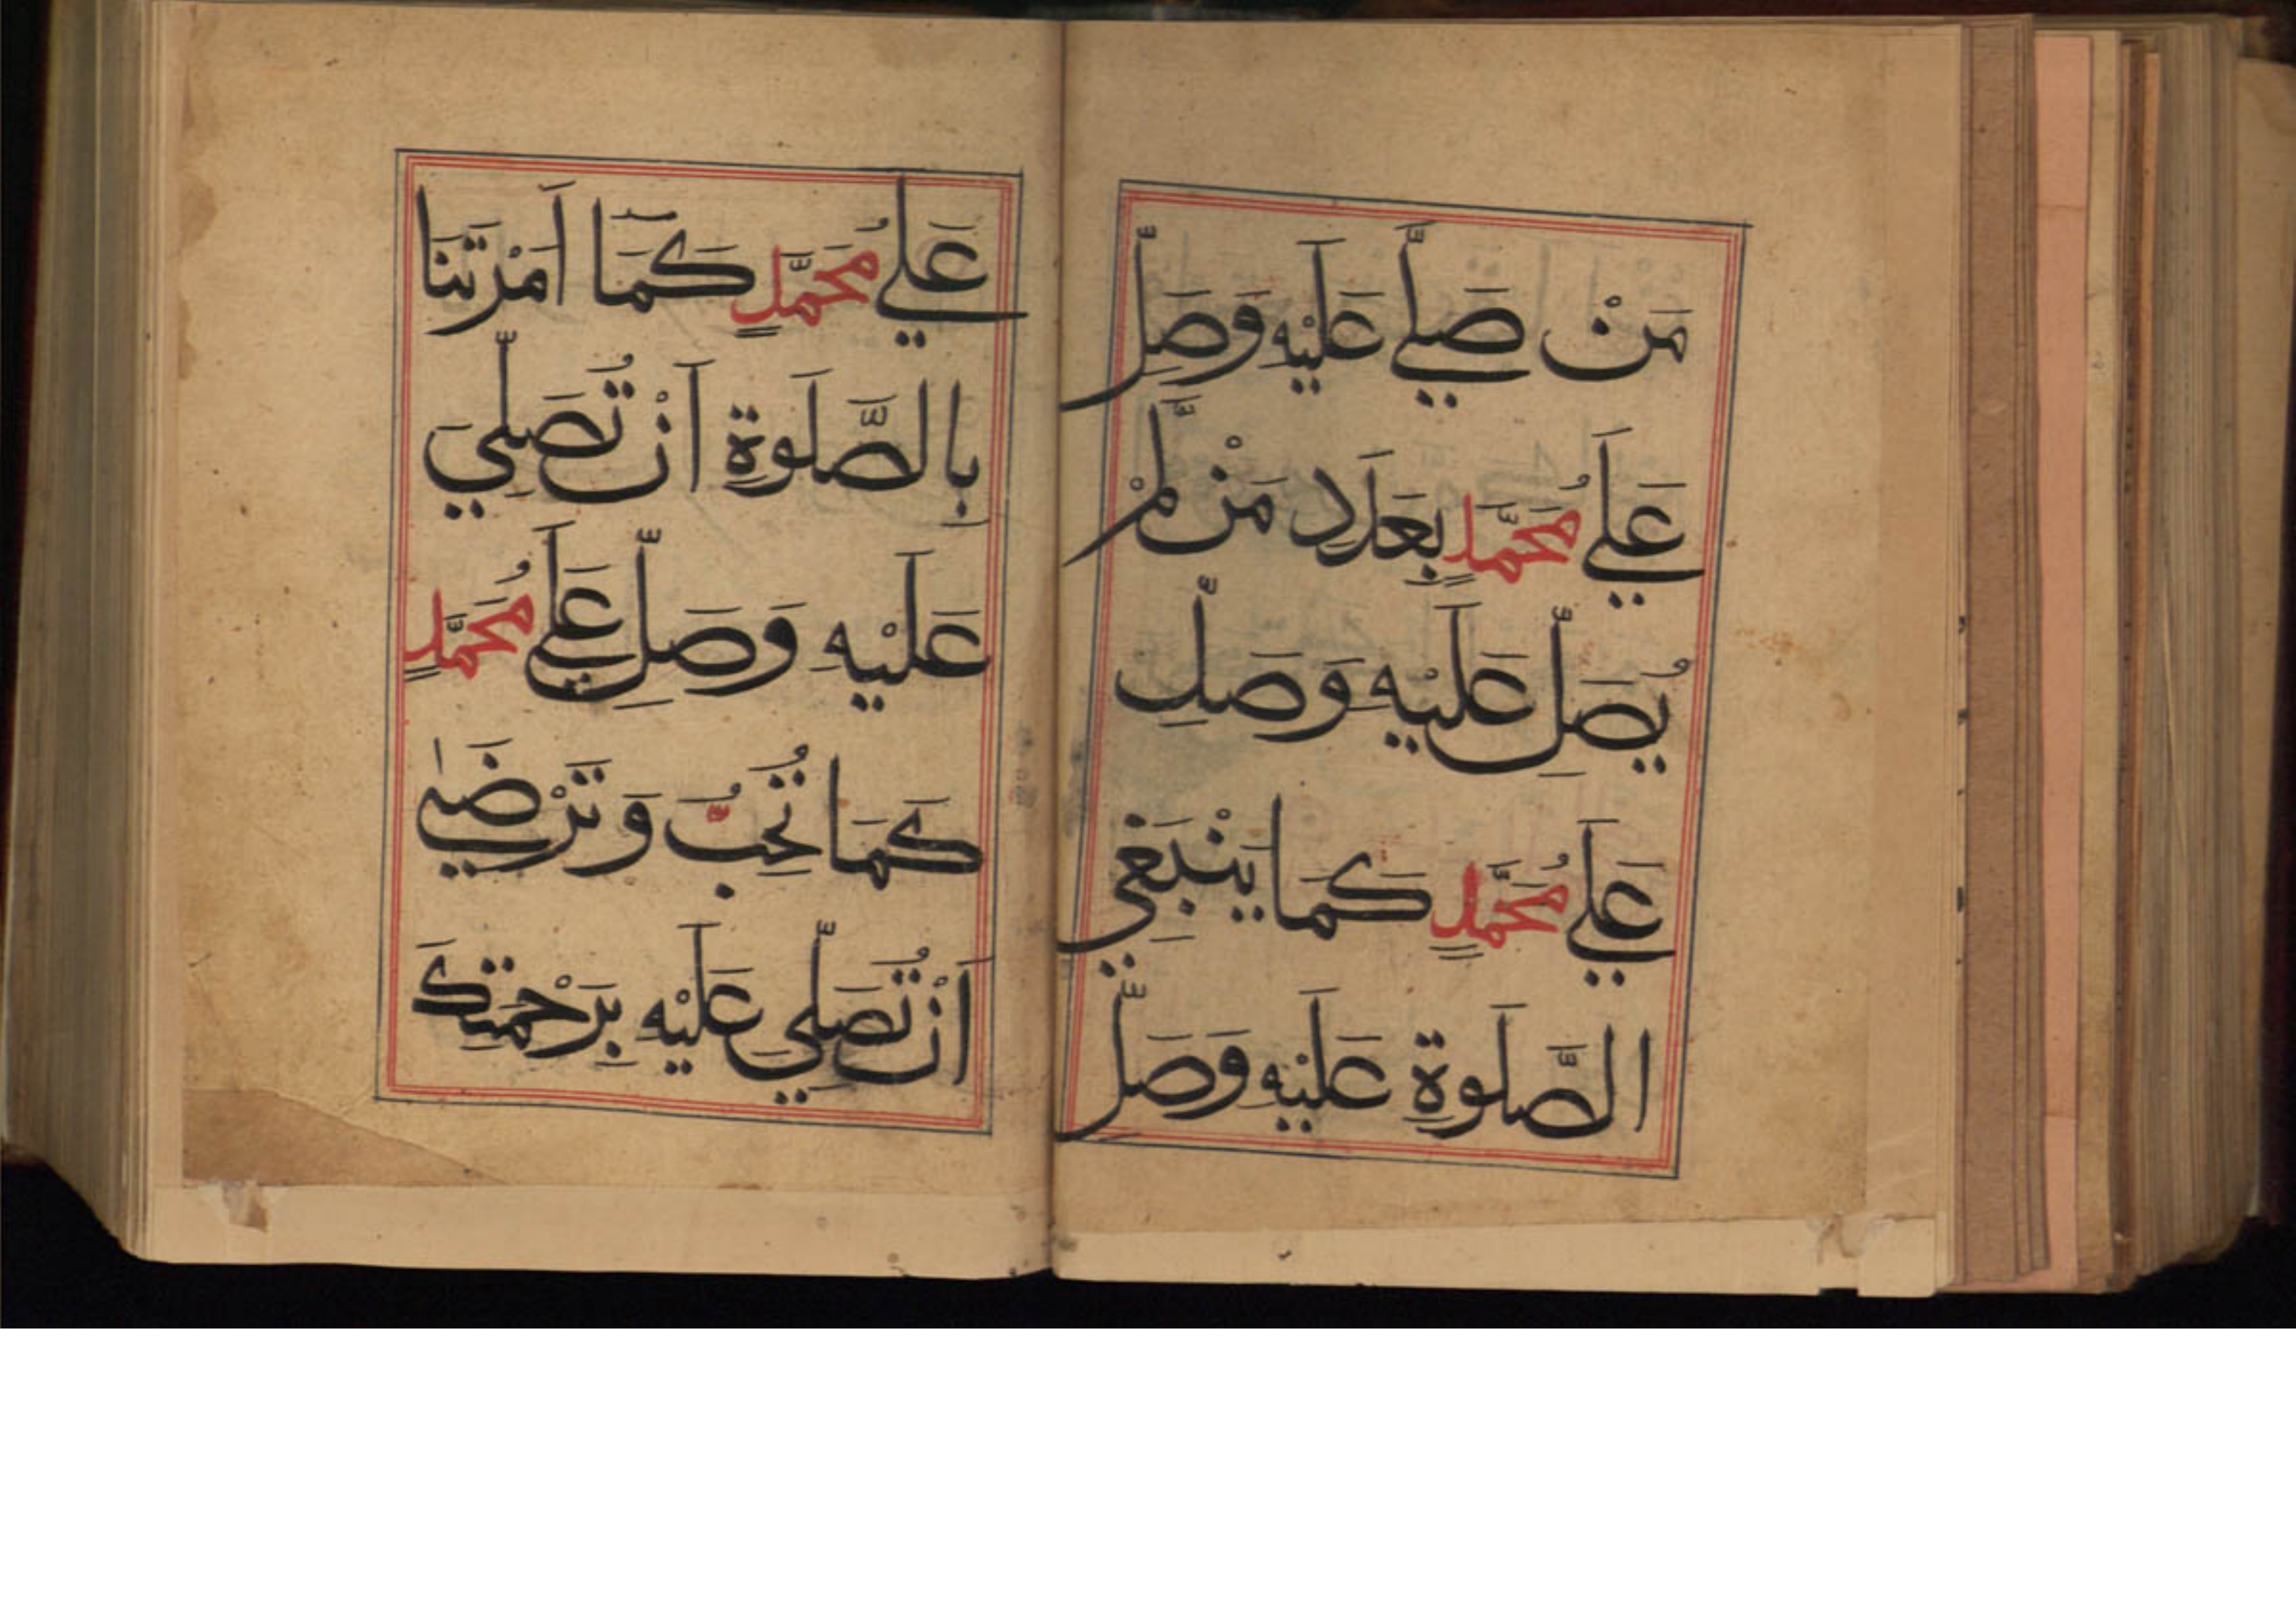 مَنْ صَلَّے عَلَيْهِ وَصَلِّ
عَلَے مُحَمَّدٍ بِعَدَدِ مَنْ لَّمْ
يُصَلِّ عَلَيْهِ وَصَلِّ
عَلَے مُحَمَّدٍ كَمَا يَنْبَغِي
الصَّلَوةِ عَلَيْهِ وَصَلِّ
عَلَے مُحَمَّدٍ كَمَا اَمَرْتَنَا
بِالصَّلَوةِ اَنْ تُصَلِّيَ
عَلَيْهِ وَصَلِّ عَلَے مُحَمَّدٍ
كَمَا تُحِبُّ وَتَرْضَى
اَنْ تُصَلِّيَ عَلَيْهِ بِرَحْمَتِكَ